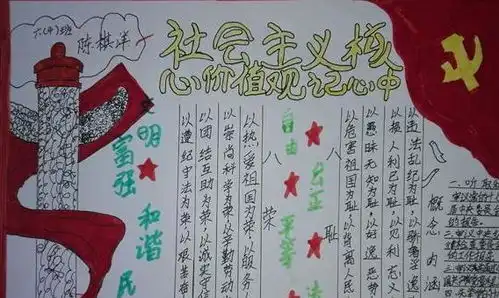 六(4)班
陈棋洋
社会主义核
心价值观记心中
文明 富强 和谐 民
以热爱祖国为荣,以服务人
以崇尚科学为荣,以辛勤劳动
以团结互助为荣,以诚实守信
以遵纪守法为荣,以艰苦奋
八荣
自由 公正 平等 法
八耻
以危害祖国为耻,以背离人民
以愚昧无知为耻,以好逸恶劳
以损人利己为耻,以见利忘义
以违法乱纪为耻,以骄奢淫逸
概念内涵
一、听取